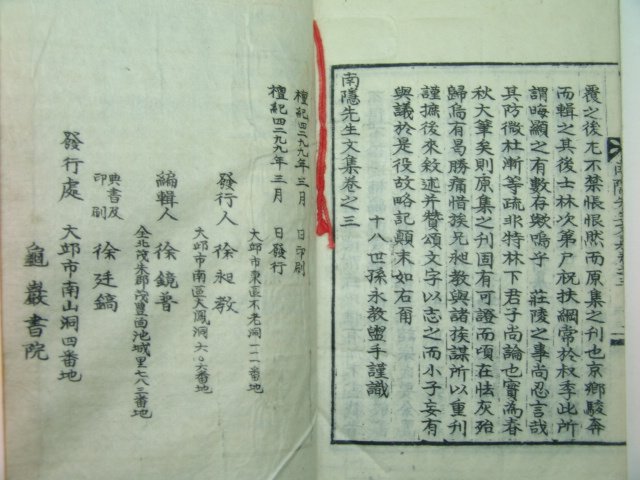 覆之後尤不禁悵恨然而原集之刊也京鄉駿奔
而輯之其後士林次第尸祝扶綱常於叔季此所
謂晦顯之有數存歟嗚乎 莊陵之事尚忍言哉
其防微杜漸等疏非特林下君子尚論也實為春
秋大筆矣則原集之刊固有可證而頃在怯灰殆
歸烏有曷勝痛惜挨兄昶教與諸族謀所以重刊
謹摭後來敘述并贊頌文字以志之而小子妄有
與議於是役故略記顛末如右爾
十八世孫永教盥手謹識
南隱先生文集卷之三
檀紀四二九九年三月 日印刷
檀紀四二九九年三月 日發行
大邱市東區不老洞一一二番地
發行人 徐昶教
大邱市南區大鳳洞六〇六番地
編輯人 徐鏡普
全北茂朱郡茂豊面池城里七八三番地
典書及印刷 徐廷鎬
發行處 大邱市南山洞四番地
龜巖書院